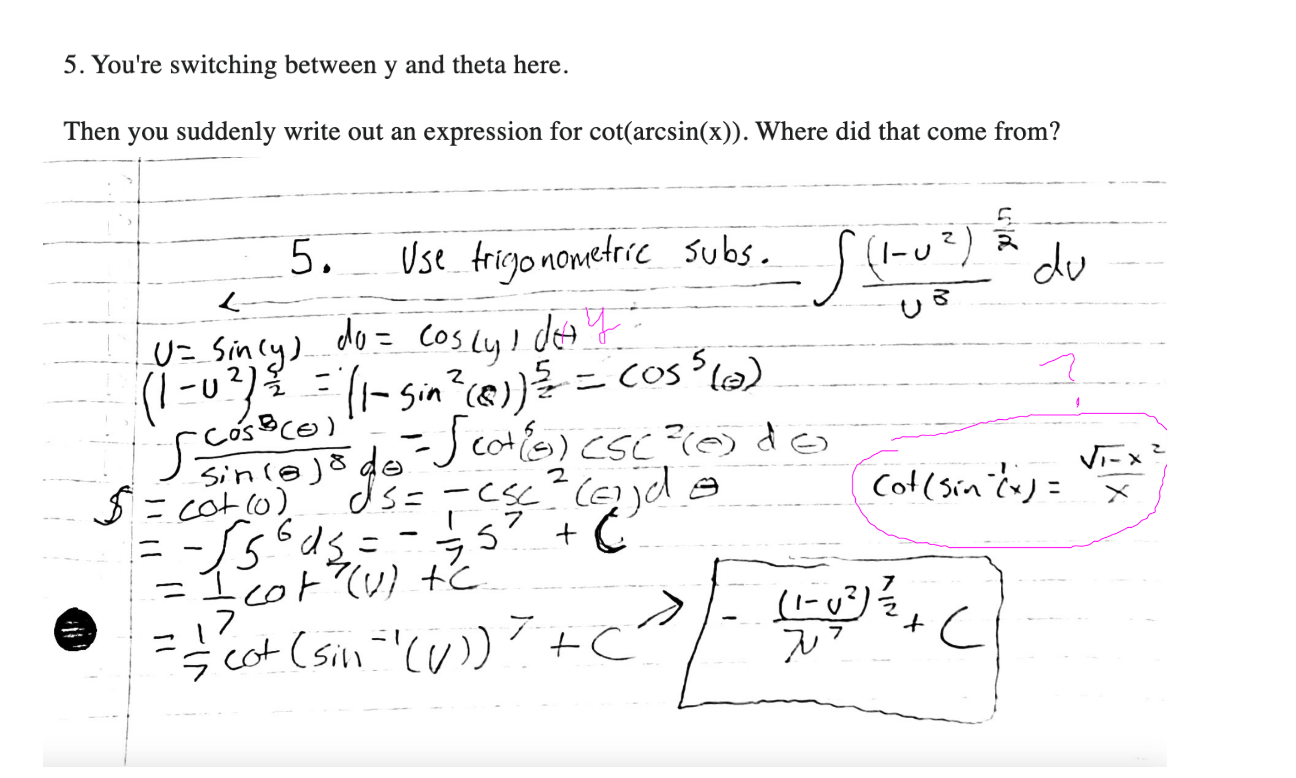 5. You're switching between y and theta here.
Then you suddenly write out an expression for cot(arcsin(x)). Where did that come from?
5. Use trigonometric subs. ∫ (1-u²)^(5/2) / u⁸ du
u = sin(y) du = cos(y) dθ y
(1-u²)^(5/2) = (1-sin²(θ))^(5/2) = cos⁵(θ)
?
∫ cos⁶(θ) / sin(θ)⁸ dθ = ∫ cot⁶(θ) csc²(θ) dθ
cot(sin⁻¹(x)) = √1-x² / x
s = cot(θ) ds = -csc²(θ) dθ
= -∫s⁶ds = -1/7 s⁷ + C
= 1/7 cot⁷(u) + C
= 1/7 cot(sin⁻¹(u))⁷ + C → - (1-u²)^(7/2) / 7u⁷ + C